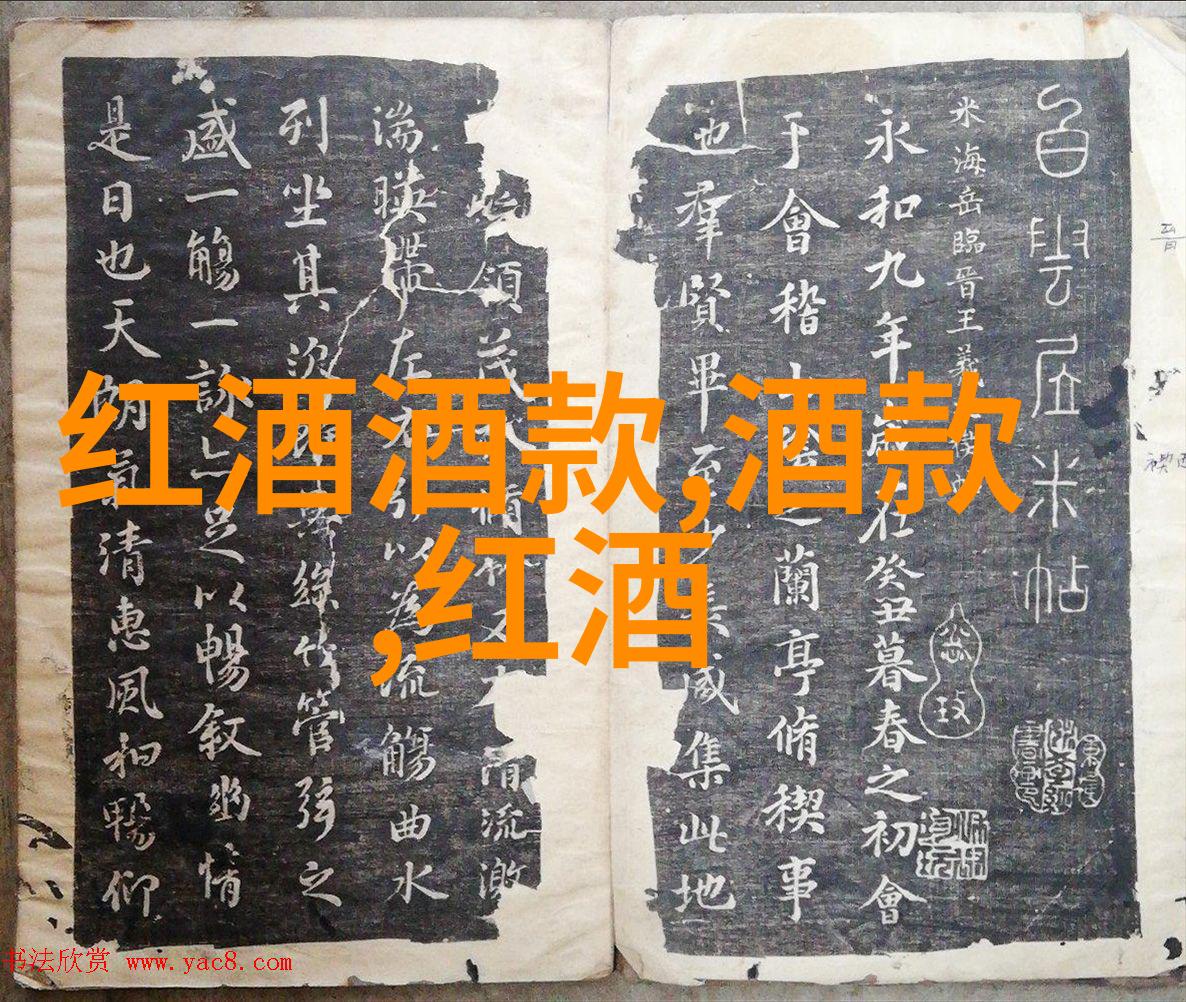 白雲居米帖
米海岳臨晉王羲
永和九年歲在癸丑暮春之初會
于會稽山陰之蘭亭脩稧事
也羣賢畢至少長咸集此地
領茂林脩竹又有清流激
湍暎帶左右引以為流觴曲水
列坐其次雖無絲竹管弦之
盛一觴一詠亦足以暢叙幽情
是日也天朗氣清惠風和暢仰
红酒酒款,酒款
,红酒
书法欣赏 www.yac8.com